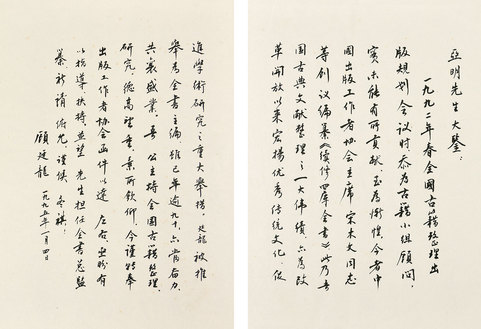 亞明先生大鑒：
一九九二年春全國古籍整理出
版規劃會議時忝為古籍小組顧問，
實未能有所貢献，至為慚惶。今者中
國出版工作者協会主席宋木文同志
等創议编纂《续修四庫全書》，此乃吾
國古典文献整理之一大偉績，亦為改
革開放以来宏揚优秀传統文化、促
進學術研究之重大舉措。廷龍被推
舉為全書主编，雖已年逾九十，亦当尽力，
共襄盛業。吾公主持全國古籍整理
研究，德高望重，素所欽仰，今謹特奉
出版工作者協会函件以達左右，亟盼有
以指導、扶持，並望先生担任全書总監
纂，祈請俯允。谨候
冬祺
顧廷龍
一九九五年一月四日